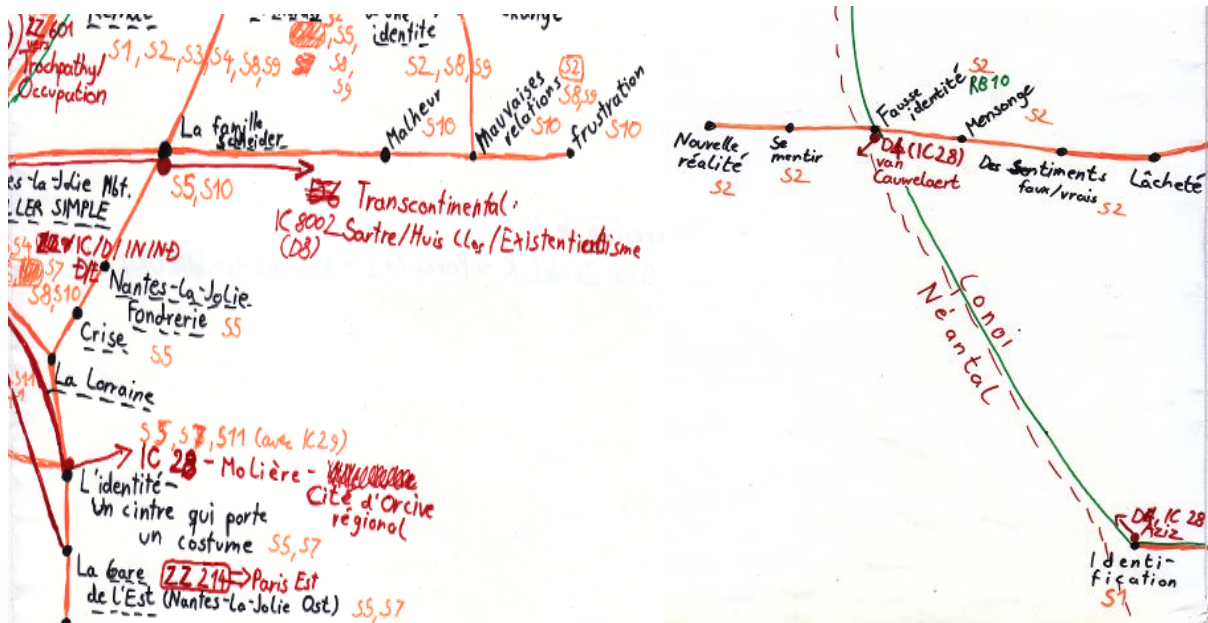 ZZ 601
vers
Trochpathy/
Occupation
S1, S2, S3, S4, S8, S9
S5,
S8,
S9
d'une
identité
change
S2, S8, S9
S2
S8, S9
La famille
Schneider
Malheur
S10
Mauvaises
relations
S10
frustration
S10
S5, S10
Transcontinental:
IC 8002 Sartre/Huis Clos/Existentialisme
(D8)
es-la-Jolie Hbf.
LLER SIMPLE
S4
S7
S8, S10
IC/D/ININD
D/E
Nantes-la-Jolie
Fondrerie S5
Crise
S5
La Lorraine
S11
S5, S7, S11 (avec IC29)
IC 28 - Molière -
Cité d'Orcive
régional
L'identité-
un cintre qui porte
un costume S5, S7
La Gare ZZ 214 ⇒ Paris Est
de l'Est (Nantes-la-Jolie Ost) S5, S7
Nouvelle
réalité
S2
Se
mentir
S2
Fausse
identité
S2
RB10
D4 (IC28)
van
Cauwelaert
Mensonge
S2
Des Sentiments
faux/vrais S2
Lâcheté
Conoi
Néantal
D4, IC 28
Aziz
Identi-
fication
S1